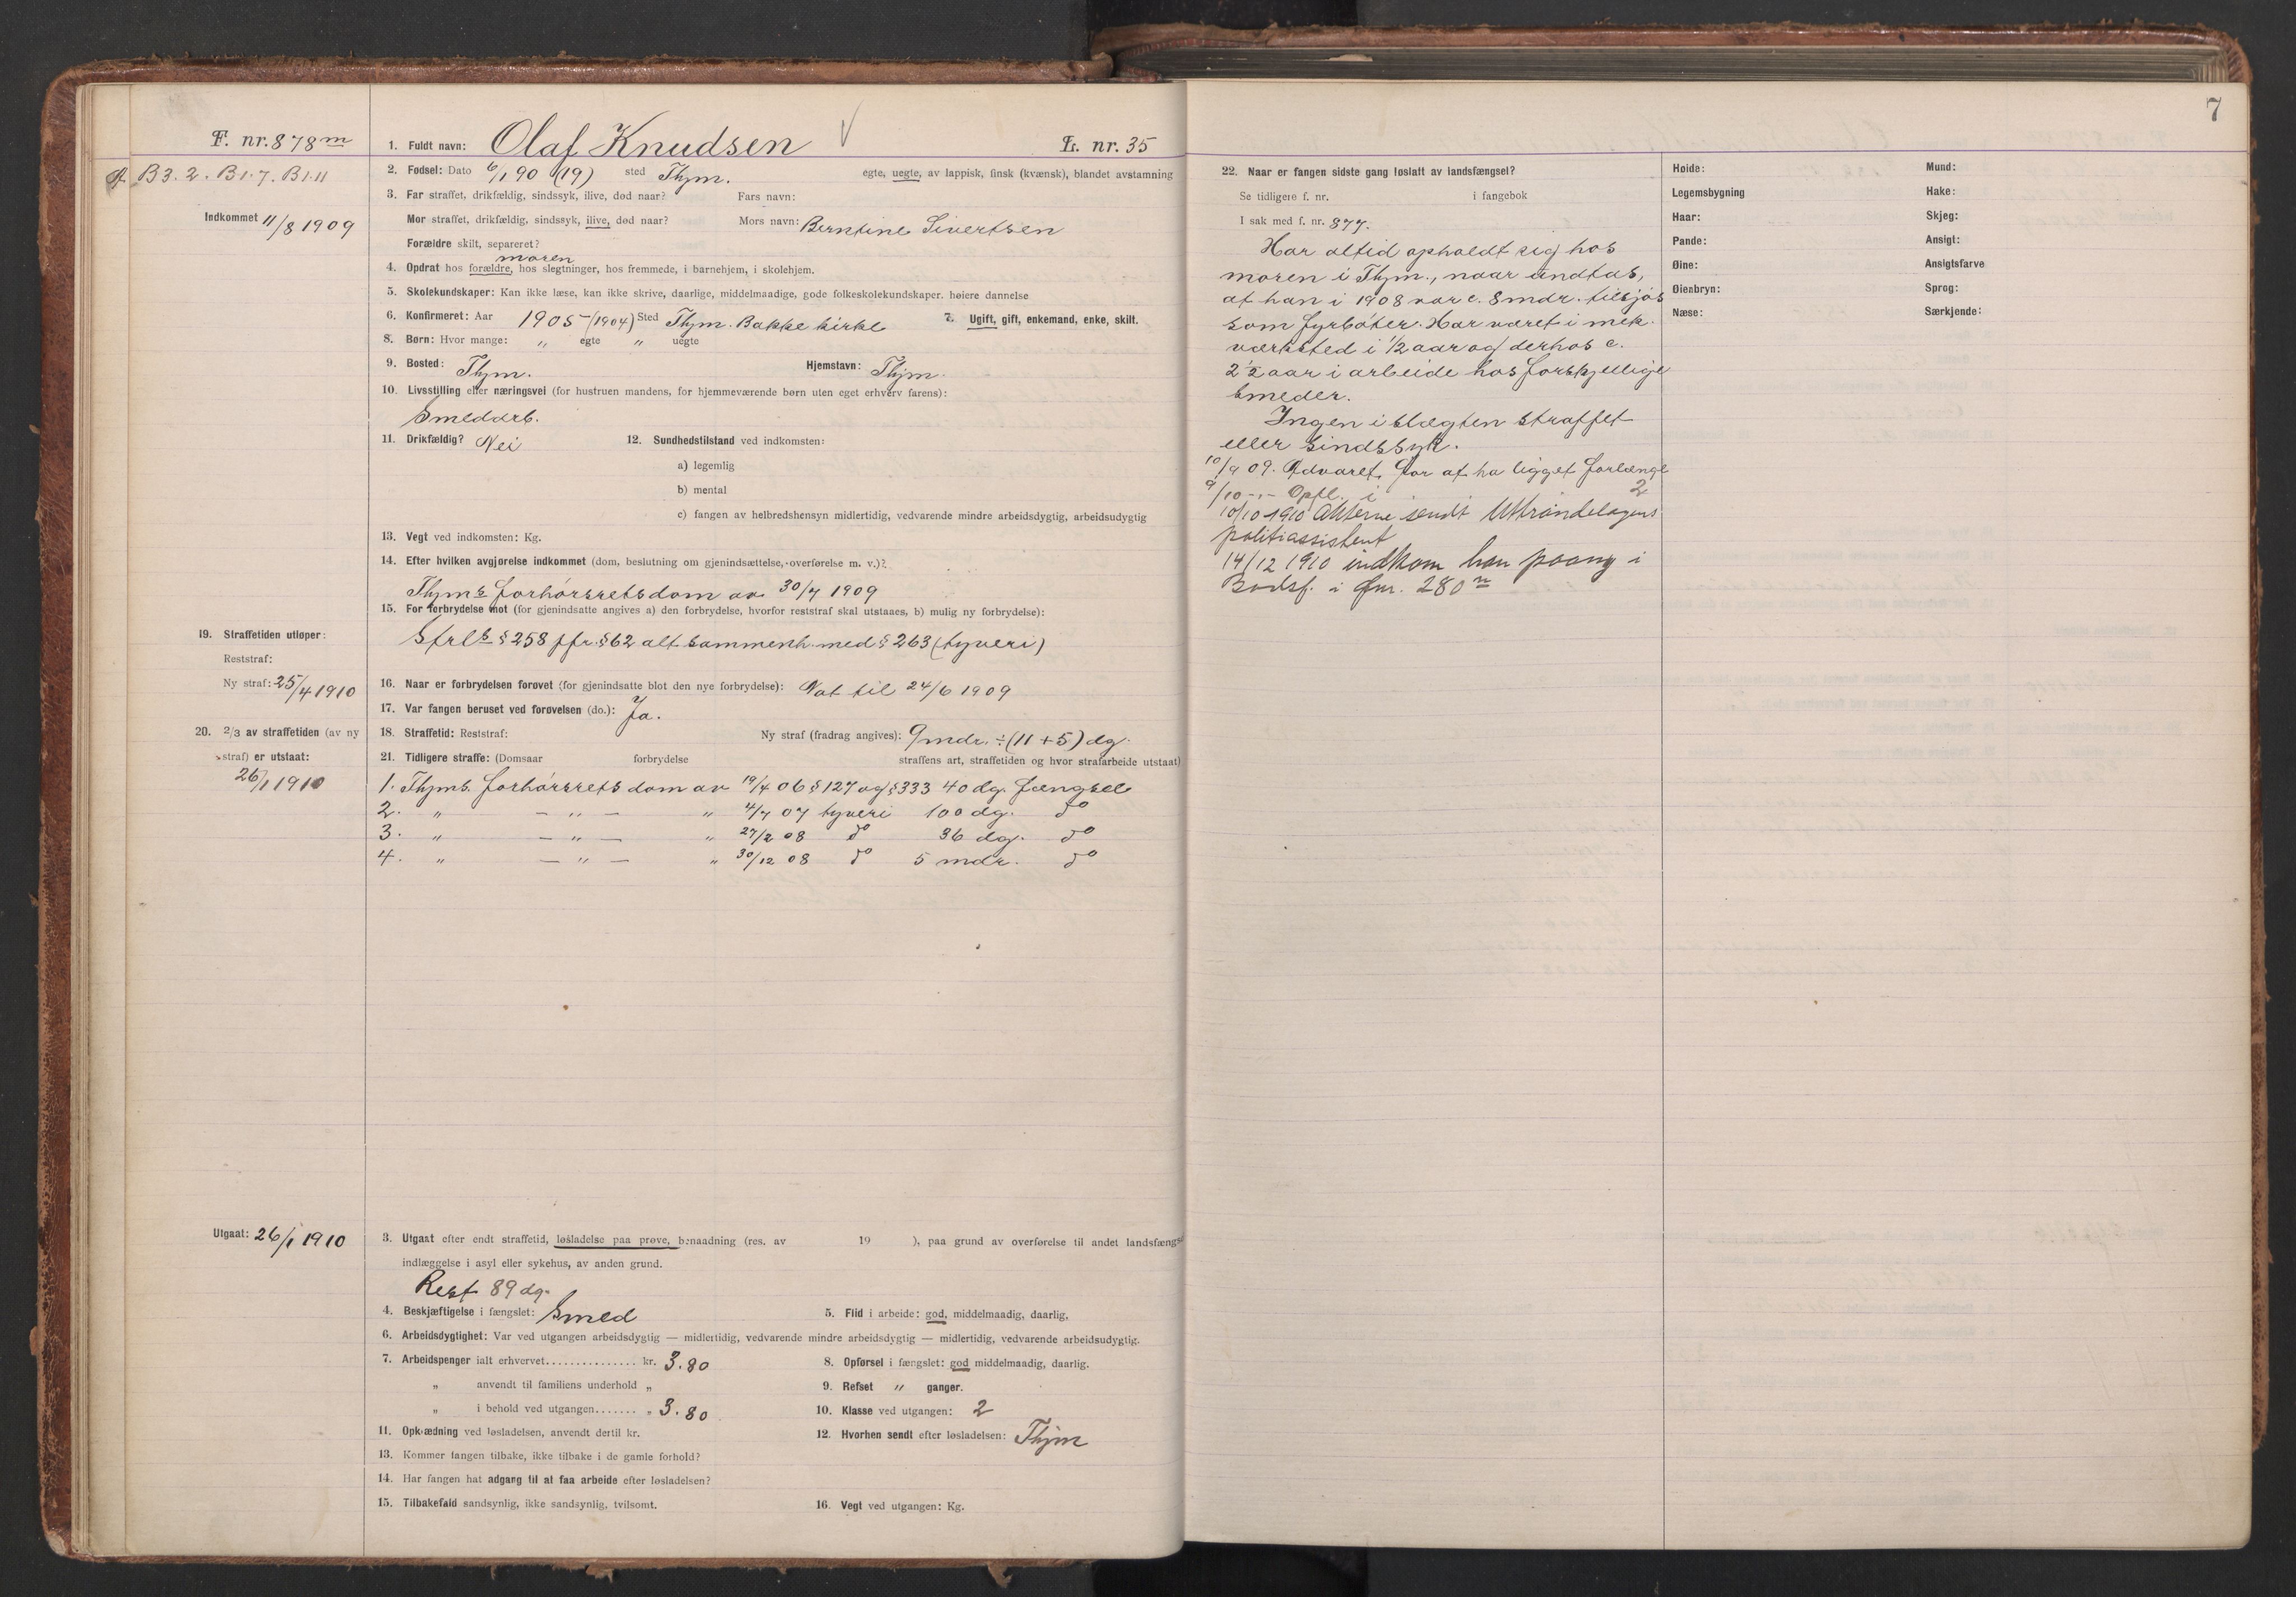 F. nr. 878 m
1. Fuldt navn: Olaf Knudsen L. nr. 35
B3. 2. B1. 7. B1. 11
2. Fødsel: Dato 6/1 90 (19) sted Thjm. egte, uegte, av lappisk, finsk (kvænsk), blandet avstamning
3. Far straffet, drikfældig, sindssyk, ilive, død naar? Fars navn:
Indkommet 11/8 1909
Mor straffet, drikfældig, sindssyk, ilive, død naar? Mors navn: Berntine Sivertsen
Forældre skilt, separeret?
moren
4. Opdrat hos forældre, hos slegtninger, hos fremmede, i barnehjem, i skolehjem.
5. Skolekundskaper: Kan ikke læse, kan ikke skrive, daarlige, middelmaadige, gode folkeskolekundskaper. høiere dannelse
6. Konfirmeret: Aar 1905 (1904) Sted Thjm. Bakke kirke 7. Ugift, gift, enkemand, enke, skilt.
8. Børn: Hvor mange: „ egte „ uegte
9. Bosted: Thjm. Hjemstavn: Thjm.
10. Livsstilling eller næringsvei (for hustruen mandens, for hjemmeværende børn uten eget erhverv farens):
Smedarb.
11. Drikfældig? Nei 12. Sundhedstilstand ved indkomsten:
a) legemlig
b) mental
c) fangen av helbredshensyn midlertidig, vedvarende mindre arbeidsdygtig, arbeidsudygtig
13. Vegt ved indkomsten: Kg.
14. Efter hvilken avgjørelse indkommet (dom, beslutning om gjenindsættelse, overførelse m. v.)?
Thjms forhørsretsdom av 30/7 1909
15. For forbrydelse mot (for gjenindsatte angives a) den forbrydelse, hvorfor reststraf skal utstaaes, b) mulig ny forbrydelse):
Strls § 258 jfr. § 62 alt sammenh. med § 263 (tyveri)
19. Straffetiden utløper:
Reststraf:
Ny straf: 25/4 1910
16. Naar er forbrydelsen forøvet (for gjenindsatte blot den nye forbrydelse): Nat til 24/6 1909
17. Var fangen beruset ved forøvelsen (do.): Ja.
20. 2/3 av straffetiden (av ny
straf) er utstaat:
26/1 1910
18. Straffetid: Reststraf: Ny straf (fradrag angives): 9 mdr. ÷ (11 + 5) dg.
21. Tidligere straffe: (Domsaar forbrydelse straffens art, straffetiden og hvor strafarbeide utstaat)
1. Thjms. forhørsrets dom av 19/4 06 § 127 og § 333 40 dg. fængsel
2. „ — „ — „ 4/7 07 tyveri 100 dg. do
3. „ — „ — „ 27/2 08 do 36 dg. do
4. „ — „ — „ 30/12 08 do 5 mdr. do
Utgaat: 26/1 1910
3. Utgaat efter endt straffetid, løsladelse paa prøve, benaadning (res. av 19 ), paa grund av overførelse til andet landsfængsel
indlæggelse i asyl eller sykehus, av anden grund.
Rest 89 dg.
4. Beskjæftigelse i fængslet: Smed 5. Flid i arbeide: god, middelmaadig, daarlig.
6. Arbeidsdygtighet: Var ved utgangen arbeidsdygtig — midlertidig, vedvarende mindre arbeidsdygtig — midlertidig, vedvarende arbeidsudygtig.
7. Arbeidspenger ialt erhvervet............... kr. 3.80 8. Opførsel i fængslet: god middelmaadig, daarlig.
„ anvendt til familiens underhold „ 9. Refset „ ganger.
„ i behold ved utgangen....... „ 3.80 10. Klasse ved utgangen: 2
11. Opklædning ved løsladelsen, anvendt dertil kr. 12. Hvorhen sendt efter løsladelsen: Thjm
13. Kommer fangen tilbake, ikke tilbake i de gamle forhold?
14. Har fangen hat adgang til at faa arbeide efter løsladelsen?
15. Tilbakefald sandsynlig, ikke sandsynlig, tvilsomt. 16. Vegt ved utgangen: Kg.
7
22. Naar er fangen sidste gang løslatt av landsfængsel?
Se tidligere f. nr. i fangebok
I sak med f. nr. 877.
Har altid opholdt sig hos
moren i Thjm., naar undtas,
at han i 1908 var c. 8 mdr. tilsjøs
som fyrbøter. Har været i mek.
værksted i 1/2 aar og derhos c.
2 1/2 aar i arbeide hos forskjellige
smeder.
Ingen i slægten straffet
eller sindssyk.
10/9 09. Advaret for at ha ligget forlænge
9/10 -,- Opfl. i 2
10/10 1910 Akterne sendt Uttrøndelagens
politiassistent
14/12 1910 indkom han paany i
Bodsf. i fnr. 280 n
Høide: Mund:
Legemsbygning Hake:
Haar: Skjeg:
Pande: Ansigt:
Øine: Ansigtsfarve
Øienbryn: Sprog:
Næse: Særkjende: